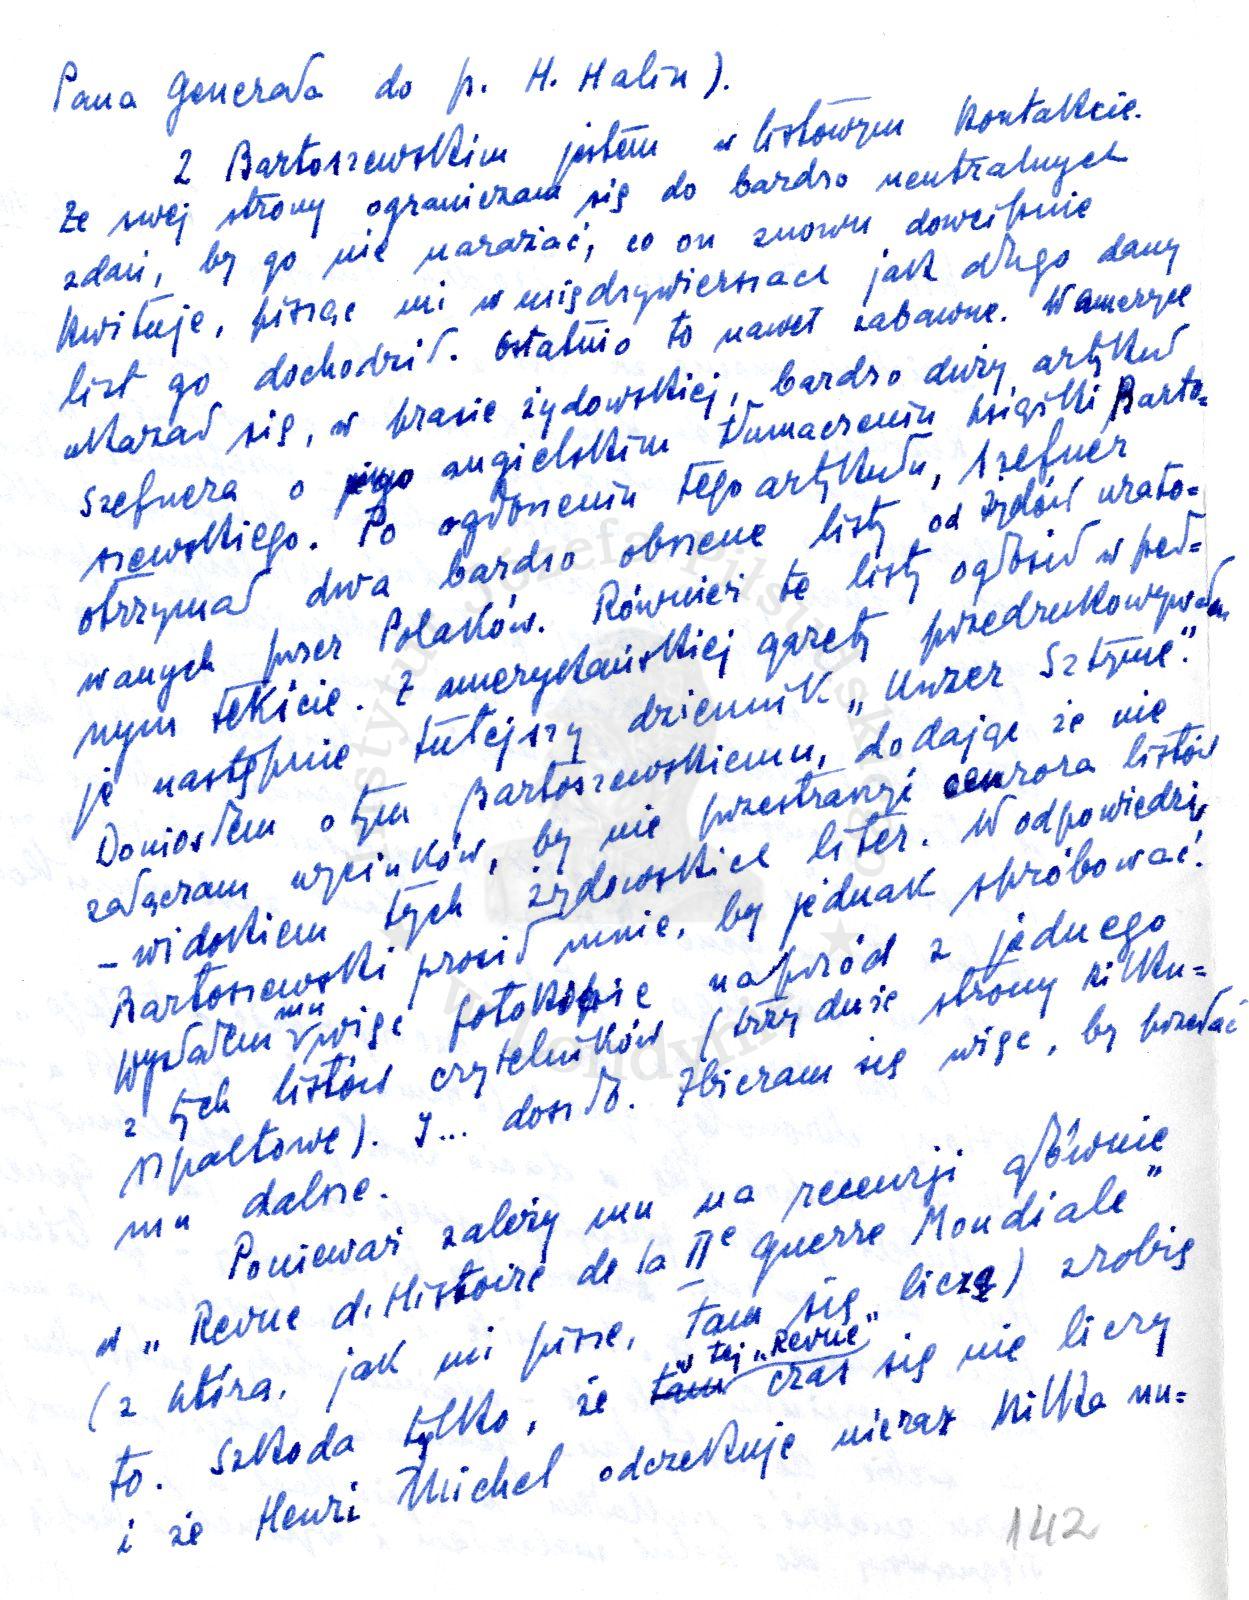 Pana Generała do p. H. Halin).
Z Bartoszewskim jestem w listowym kontakcie.
Ze swej strony ograniczam się do bardzo neutralnych
zdań, by go nie narażać, co on znowu dowcipnie
kwituje, pisząc mi w międzywierszach jak długo dany
list go dochodził. Ostatnio to nawet zabawne. W Ameryce
ukazał się, w prasie żydowskiej, bardzo duży artykuł
Szefnera o angielskim tłumaczeniu książki Barto=
szewskiego. Po ogłoszeniu tego artykułu, Szefner
otrzymał dwa bardzo obszerne listy od Żydów urato=
wanych przez Polaków. Również te listy ogłosił w peł=
nym tekście. Z amerykańskiej gazety przedrukowywał
je następnie tutejszy dziennik „Unzer Sztyme".
Doniosłem o tym Bartoszewskiemu, dodając że nie
załączam wycinków, by nie przestraszyć cenzora listów
- widokiem tych żydowskich liter. W odpowiedzi,
Bartoszewski prosił mnie, by jednak spróbować.
Wysłałem mu więc fotokopie naprzód z jednego
z tych listów czytelników (trzy duże strony kilku=
szpaltowe). I... doszło. Zbieram się więc, by przesłać
mu dalsze.
Ponieważ zależy mu na recenzji głównie
w „Revue d.Histoire de la IIe guerre Mondiale"
(z którą, jak mi pisze, tam się „liczą) zrobię
to. Szkoda tylko, że tam w tej „Revue" czas się nie liczy
i że Henri Michel odczekuje nieraz kilka nu=
142
Instytut Józefa Piłsudskiego
w Londynie